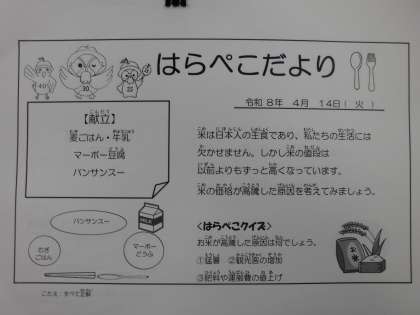 はらぺこだより
令和８年　４月　１４日（　火　）
【献立】
麦ごはん・牛乳
マーボー豆腐
バンサンスー
米は日本人の主食であり、私たちの生活には
欠かせません。しかし米の値段は
以前よりもずっと高くなっています。
米の価格が高騰した原因を考えてみましょう。
バンサンスー
むぎ
ごはん
マーボー
どうふ
<はらぺこクイズ>
お米が高騰した原因は何でしょう。
①猛暑　②観光客の増加
③肥料や運搬費の値上げ
お米
こたえ：すべて正解